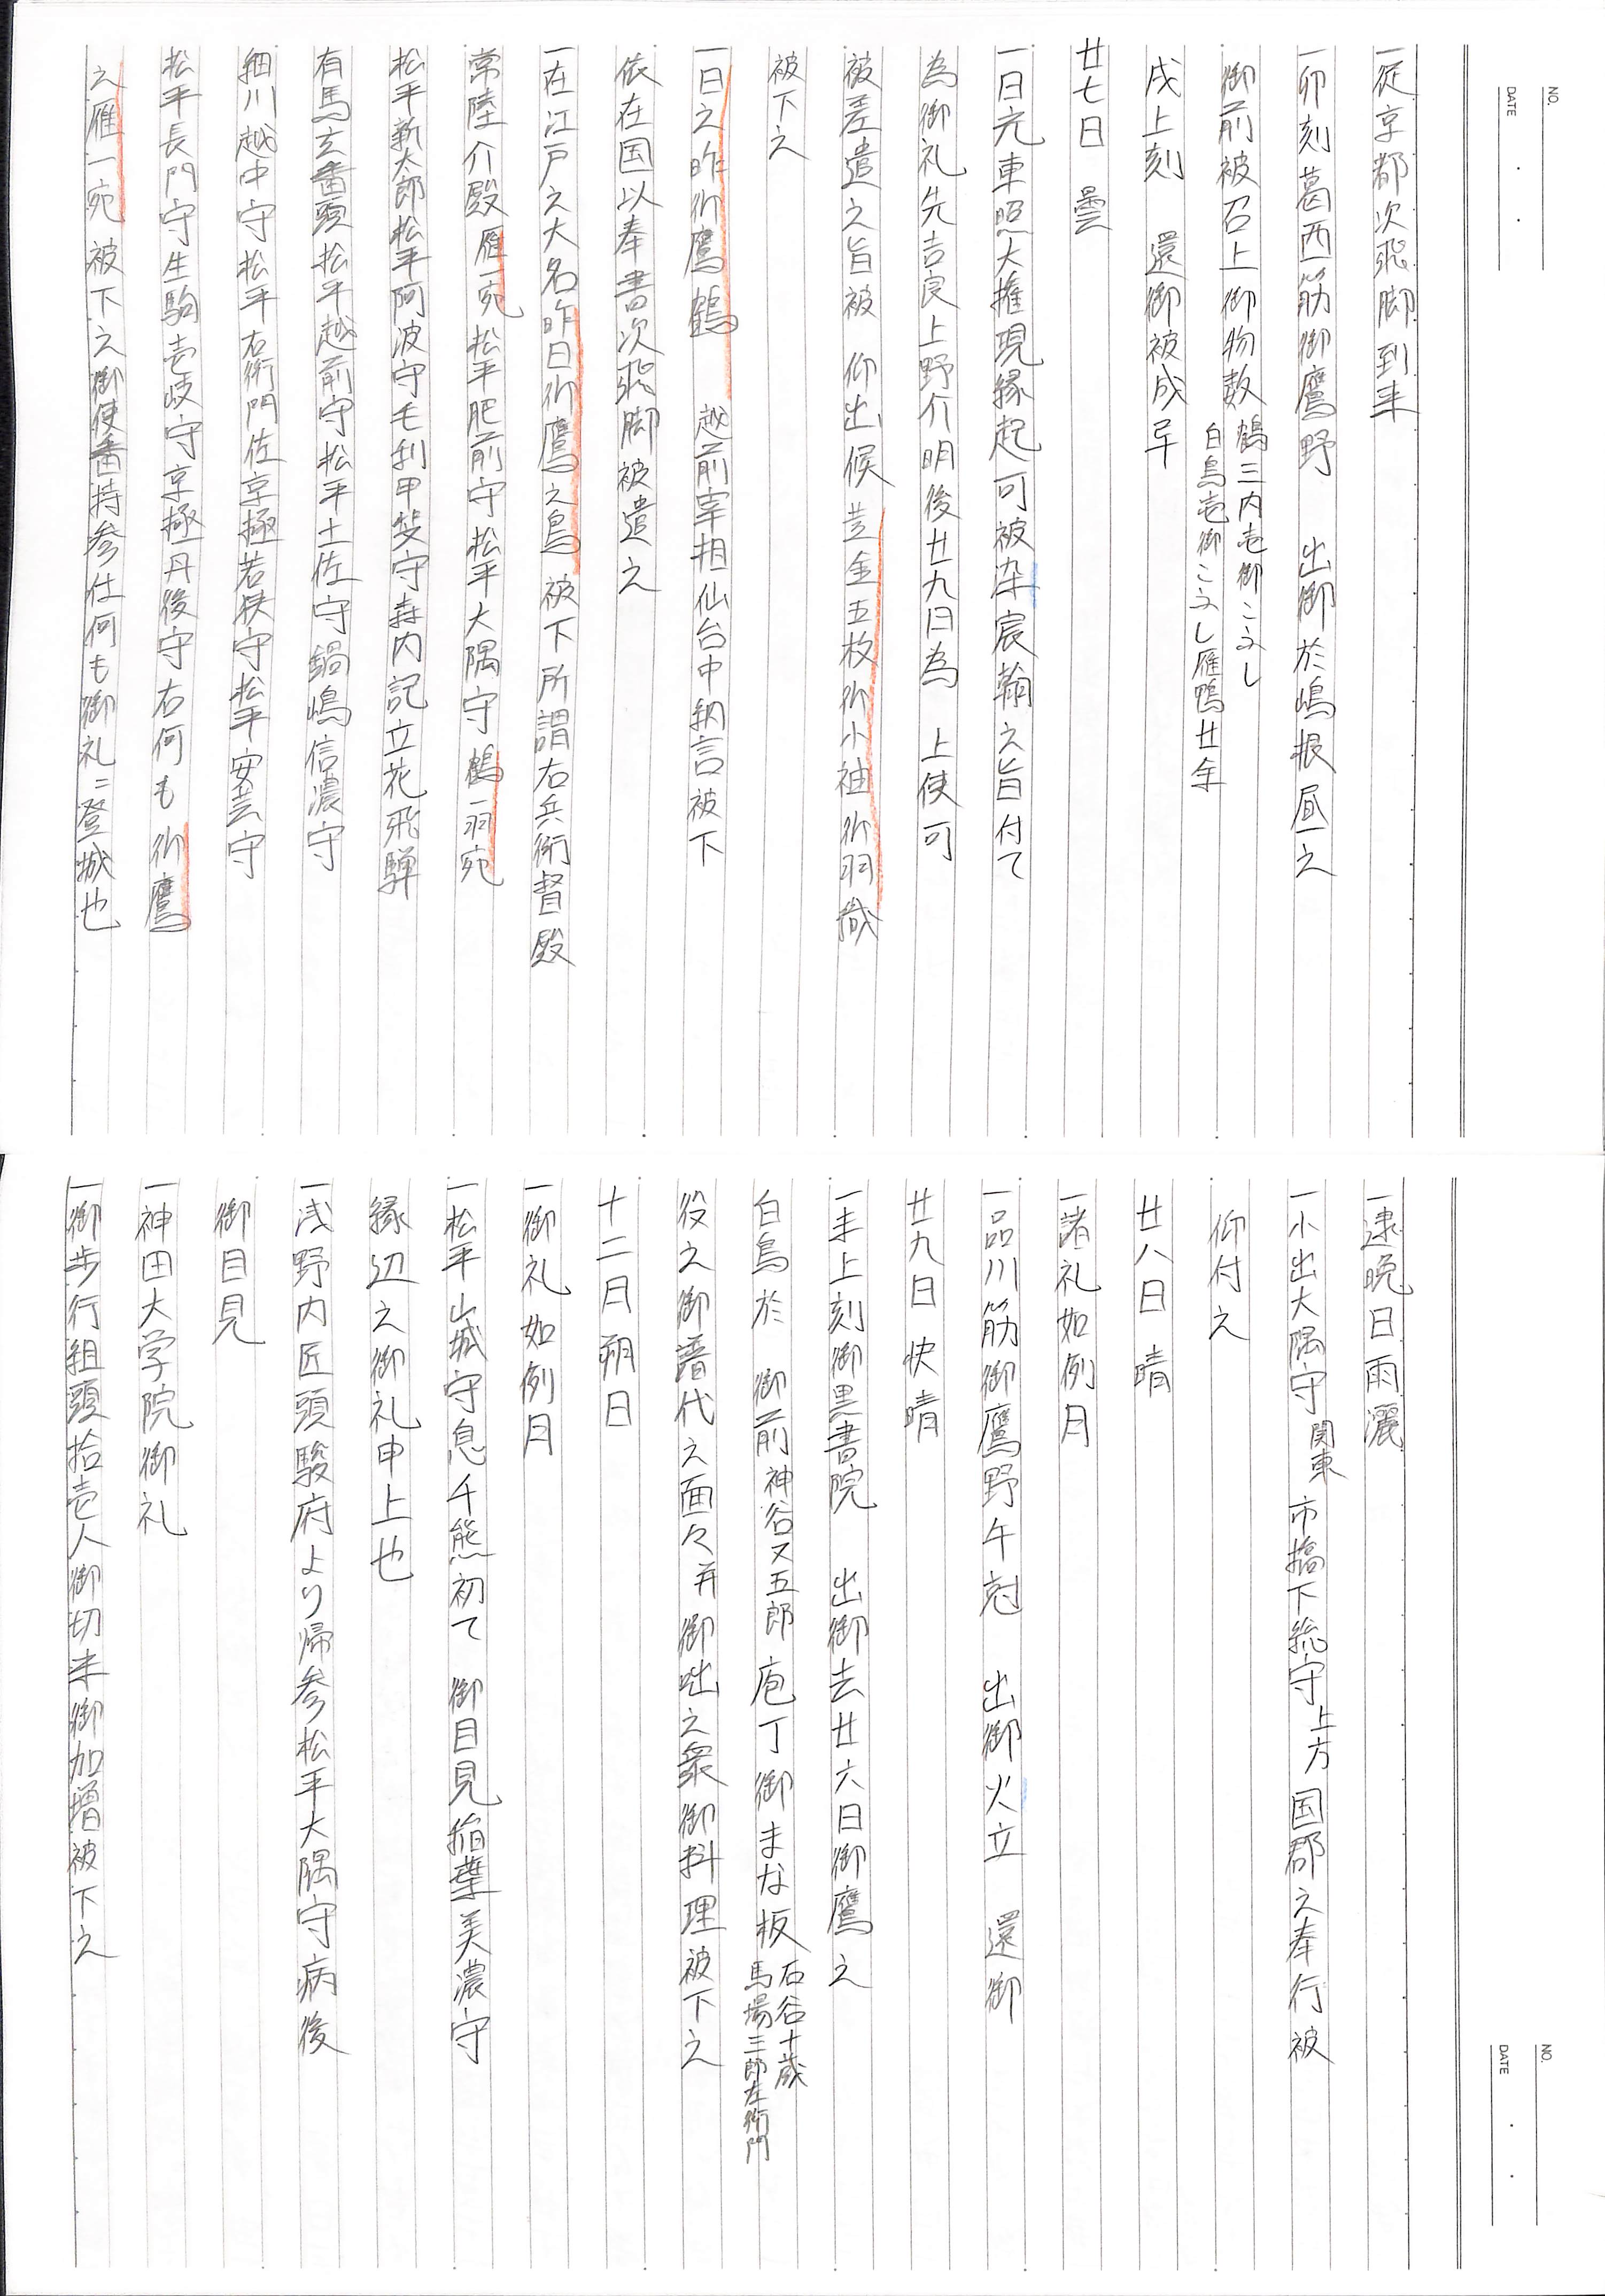 NO.
DATE
一従京都次飛脚到来
一卯刻葛西筋御鷹野　出御於嶋根昼之
御前被召上御物数 鶴三内壱御こふし
白鳥壱御こふし雁鴨廿余
戌上刻　還御被成早
廿七日　曇
一日光東照大権現縁起可被染宸翰之旨付て
為御礼先吉良上野介明後廿九日為　上使可
被差遣之旨被　仰出候　黄金五枚御小袖御羽織
被下之
一日之昨御鷹鶴　越前宰相仙台中納言被下
依在国以奉書次飛脚被遣之
一在江戸之大名昨日御鷹之鳥　被下所謂右兵衛督殿
常陸介殿　雁一宛　松平肥前守松平大隅守　鶴一羽宛
松平新太郎松平阿波守毛利甲斐守森内記立花飛騨
有馬玄蕃頭松平越前守松平土佐守鍋嶋信濃守
細川越中守松平右衛門佐京極若狭守松平安芸守
松平長門守生駒壱岐守京極丹後守右何も御鷹
之雁一宛　被下之御使番持参仕何も御礼ニ登城也
NO.
DATE
一逮晩日雨灑
一小出大隅守 関東 市橋下総守 上方 国郡之奉行被
仰付之
廿八日　晴
一諸礼如例月
一品川筋御鷹野午刻　出御火立　還御
廿九日　快晴
一未上刻御黒書院　出御去廿六日御鷹之
白鳥於　御前 神谷又五郎 庖丁御まな板 石谷十蔵
馬場三郎左衛門
役之御譜代之面々并御咄之衆御料理被下之
十二月朔日
一御礼如例月
一松平山城守息千熊初て　御目見稲葉美濃守
縁辺之御礼申上也
一浅野内匠頭駿府より帰参松平大隅守病後
御目見
一神田大学院御礼
一御歩行組頭拾壱人御切米御加増被下之